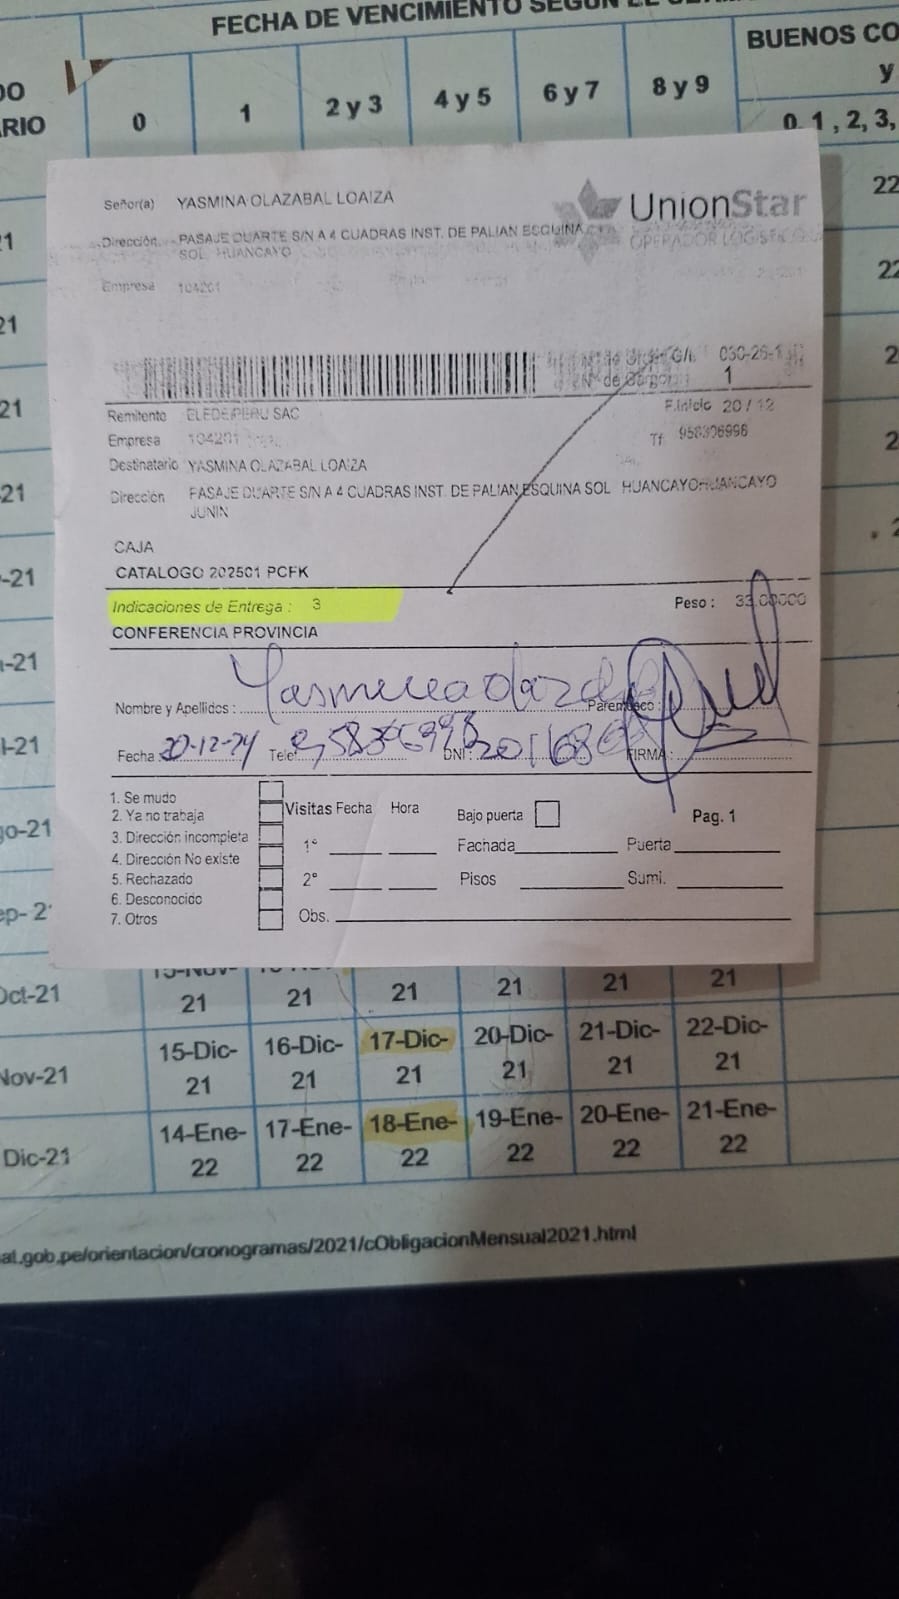 FECHA DE VENCIMIENTO SEGÚN EL
BUENOS CO
y
0 1 2 y 3 4 y 5 6 y 7 8 y 9
0, 1, 2, 3,
RIO
Señor(a) YASMINA OLAZABAL LOAIZA
UnionStar
OPERADOR LOGISTICO
Dirección PASAJE DUARTE S/N A 4 CUADRAS INST. DE PALIAN ESQUINA
SOL HUANCAYO
Empresa 104201
G/L 030-26-1
N° de Cargo 1
Remitente ELEDE PERU SAC
F.Inicio 20 / 12
Empresa 104201
Tf 958306996
Destinatario YASMINA OLAZABAL LOAIZA
Dirección PASAJE DUARTE S/N A 4 CUADRAS INST. DE PALIAN ESQUINA SOL HUANCAYO HUANCAYO
JUNIN
CAJA
CATALOGO 202501 PCFK
Indicaciones de Entrega : 3
Peso : 33.00000
CONFERENCIA PROVINCIA
Nombre y Apellidos : Parentesco :
Fecha 20-12-24 Telef DNI : FIRMA :
1. Se mudo
2. Ya no trabaja
3. Dirección incompleta
4. Dirección No existe
5. Rechazado
6. Desconocido
7. Otros
Visitas Fecha Hora Bajo puerta Pag. 1
1° Fachada Puerta
2° Pisos Sumi.
Obs.
Oct-21 21 21 21 21 21 21
15-Dic- 16-Dic- 17-Dic- 20-Dic- 21-Dic- 22-Dic-
Nov-21 21 21 21 21 21 21
14-Ene- 17-Ene- 18-Ene- 19-Ene- 20-Ene- 21-Ene-
Dic-21 22 22 22 22 22 22
at.gob.pe/orientacion/cronogramas/2021/cObligacionMensual2021.html